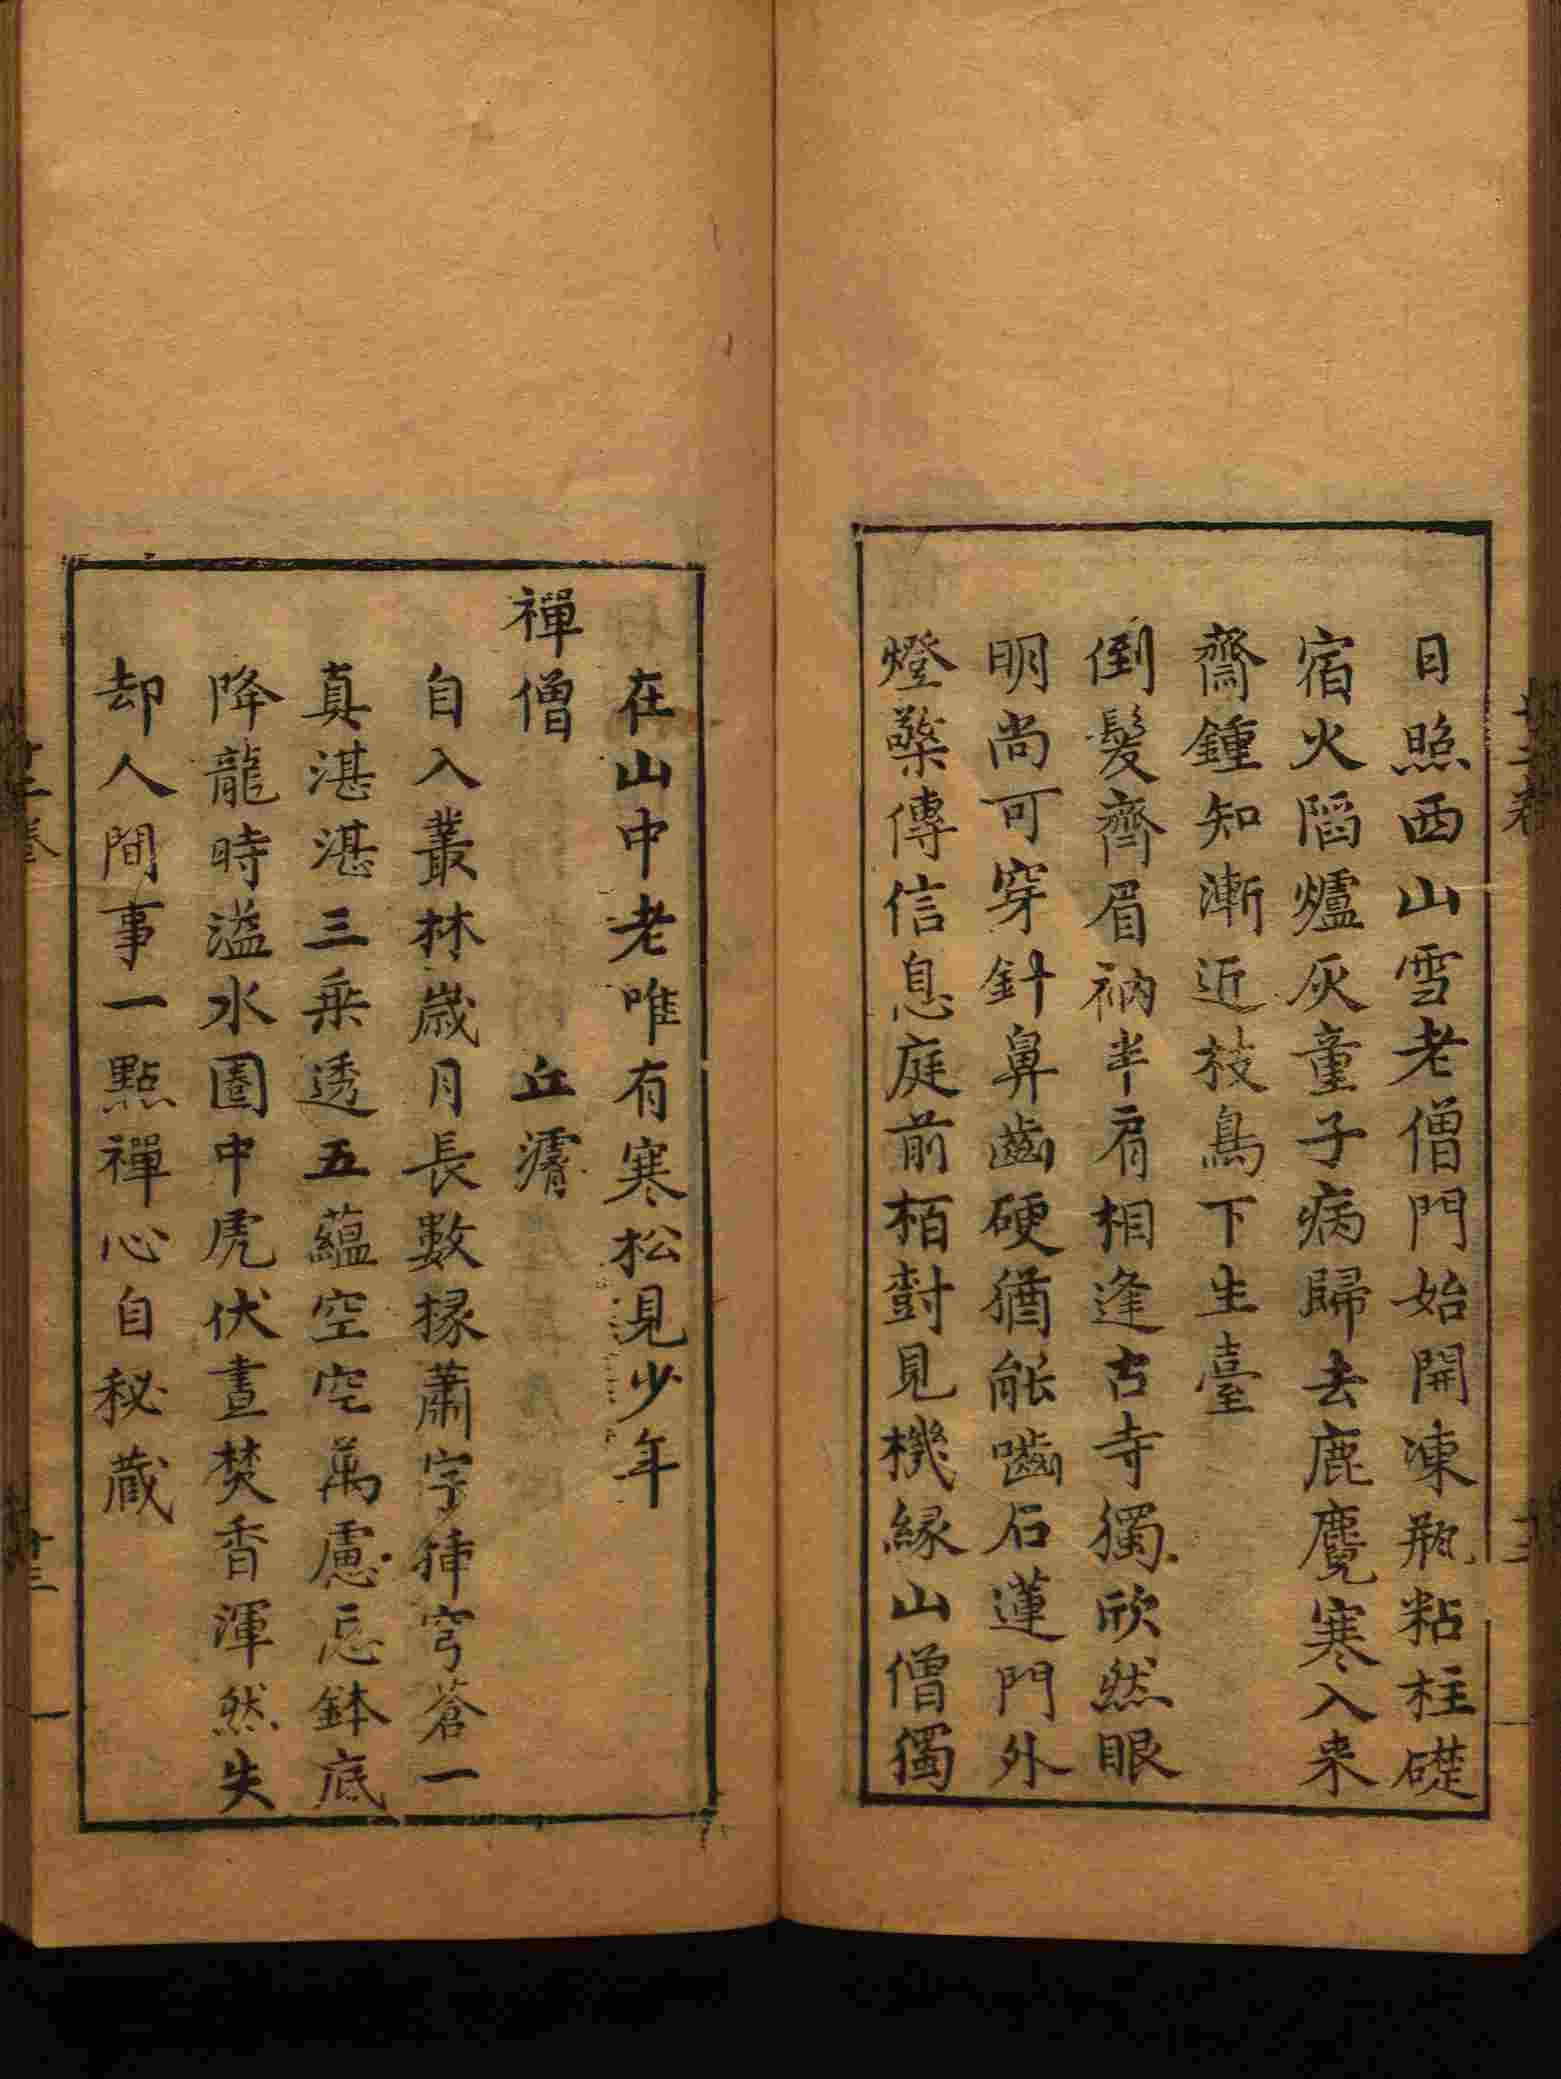 日照西山雪老僧門始開凍瓶粘柱礎
宿火陷爐灰童子病歸去鹿麑寒入来
齋鍾知漸近枝鳥下生臺
倒髮齊眉衲半肩相逢古寺獨欣然眼
明尚可穿針鼻齒硬猶能嚙石蓮門外
燈檠傳信息庭前栢對見機縁山僧獨
在山中老唯有寒松見少年
禪僧 丘濬
自入叢林歲月長數椽蕭寺挿穹蒼一
真湛湛三乘透五蘊空空萬慮忘鉢底
降龍時溢水圏中虎伏晝焚香渾然失
却人間事一點禪心自秘藏